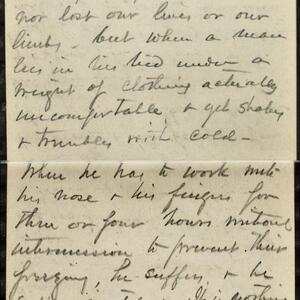 nor lost our lives or our
limbs - but when a man
lies in his bed under a
weight of clothing actually
uncomfortable & yet shakes
& trembles with cold -
When he has to work with
his nose & his fingers for
three or four hours without
intermission to prevent their
freezing, he suffers & he